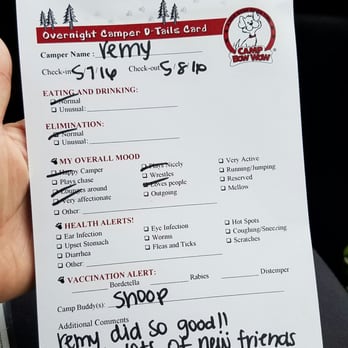 Overnight Camper D-Tails Card
CAMP
BOW WOW
Camper Name: Remy
Check-in: 5/7/16 Check-out: 5/8/16
EATING AND DRINKING:
Normal
Unusual:
ELIMINATION:
Normal
Unusual:
MY OVERALL MOOD
Happy Camper Plays Nicely Very Active
Plays chase Wrestles Running/Jumping
Lounges around Loves people Reserved
Very affectionate Outgoing Mellow
Other:
HEALTH ALERTS!
Ear Infection Eye Infection Hot Spots
Upset Stomach Worms Coughing/Sneezing
Diarrhea Fleas and Ticks Scratches
Other:
VACCINATION ALERT:
Bordetella Rabies Distemper
Camp Buddy(s): Snoop
Additional Comments
Remy did so good!!
lots of new friends